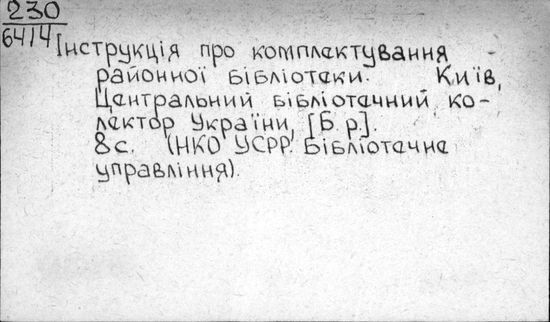 230
6414
Інструкція про комплектування
районної бібліотеки. Київ,
Центральний бібліотечний ко-
лектор України, [Б.р.].
8с. (НКО УСРР Бібліотечне
управління).